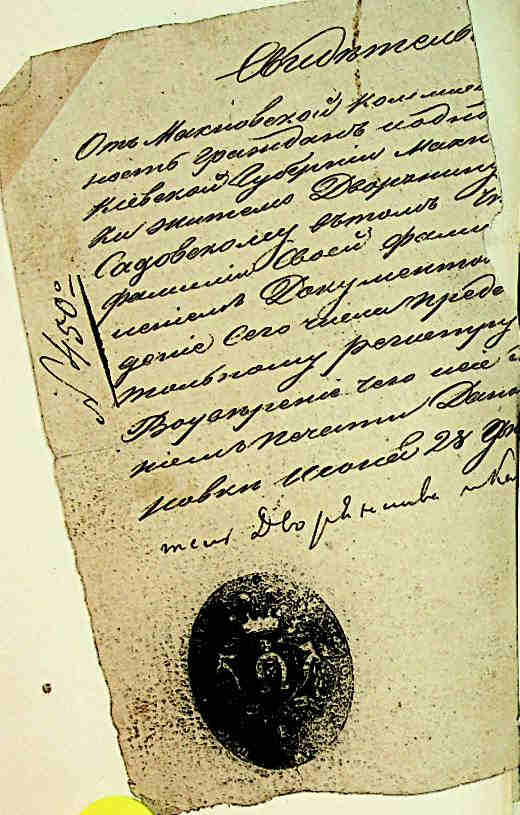 Свидѣтель
Отъ Махновской Коммис
ность гражданъ и одно
Кіевской Губерніи Махн
ки жителю Дворянину
Садовскому въ томъ
фамиліи своей фами
Документо
деніе сего числа предс
тельному регистру
Въ увѣреніе чего
ніемъ печати Дана
новки Июня 28 дня
Дворянства
№ 450